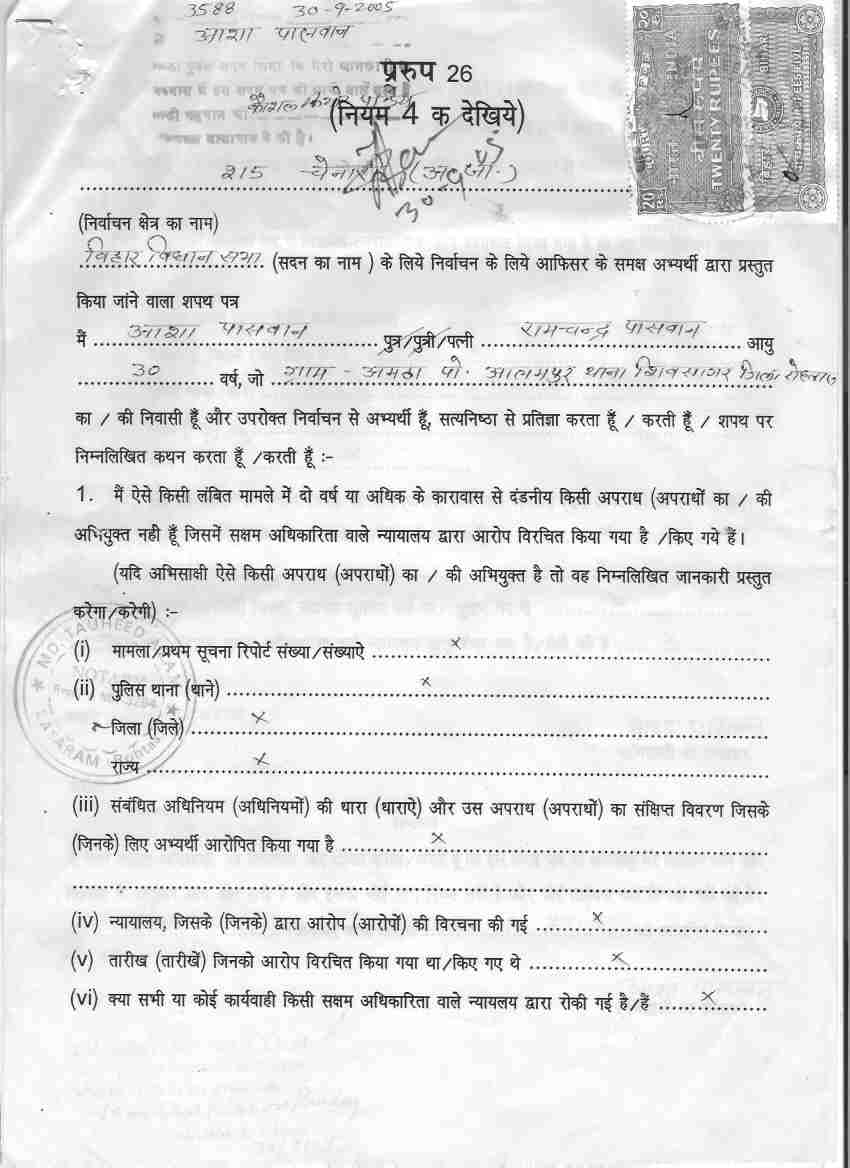 3588 30-9-2005
आशा पासवान
प्ररुप 26
(नियम 4 क देखिये)
215 (अ० जा०)
30
(निर्वाचन क्षेत्र का नाम)
बिहार विधान सभा (सदन का नाम ) के लिये निर्वाचन के लिये आफिसर के समक्ष अभ्यर्थी द्वारा प्रस्तुत
किया जांने वाला शपथ पत्र
मैं आशा पासवान पुत्र/पुत्री/पत्नी रामचन्द्र पासवान आयु
30 वर्ष, जो ग्राम - आमढा पो. आलमपुर थाना शिवसागर जिला रोहतास
का / की निवासी हूँ और उपरोक्त निर्वाचन से अभ्यर्थी हूँ, सत्यनिष्ठा से प्रतिज्ञा करता हूँ / करती हूँ / शपथ पर
निम्नलिखित कथन करता हूँ /करती हूँ :-
1. मैं ऐसे किसी लंबित मामले में दो वर्ष या अधिक के कारावास से दंडनीय किसी अपराध (अपराधों का / की
अभियुक्त नही हूँ जिसमें सक्षम अधिकारिता वाले न्यायालय द्वारा आरोप विरचित किया गया है /किए गये हैं।
(यदि अभिसाक्षी ऐसे किसी अपराध (अपराधों) का / की अभियुक्त है तो वह निम्नलिखित जानकारी प्रस्तुत
करेगा/करेगी) :-
(i) मामला/प्रथम सूचना रिपोर्ट संख्या/संख्याऐ x
(ii) पुलिस थाना (थाने) x
जिला (जिले) x
राज्य x
(iii) संबंधित अधिनियम (अधिनियमों) की धारा (धाराऐ) और उस अपराध (अपराधों) का संक्षिप्त विवरण जिसके
(जिनके) लिए अभ्यर्थी आरोपित किया गया है x
(iv) न्यायालय, जिसके (जिनके) द्वारा आरोप (आरोपों) की विरचना की गई x
(v) तारीख (तारीखें) जिनको आरोप विरचित किया गया था/किए गए थे x
(vi) क्या सभी या कोई कार्यवाही किसी सक्षम अधिकारिता वाले न्यायलय द्वारा रोकी गई है/हैं x
MD. TAUHEED ALAM
NOTARY
SASARAM (Rohtas)
INDIA
भारत
बीस रुपये
TWENTY RUPEES
20
बिहार
BIHAR